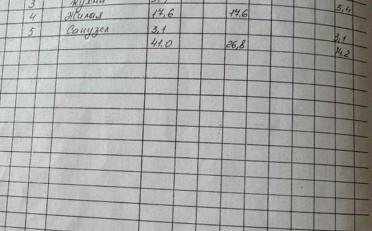 3 Кухня 5,4
4 Жилая 17,6 17,6
5 Санузел 3,1 3,1
41.0 26,8 14,2